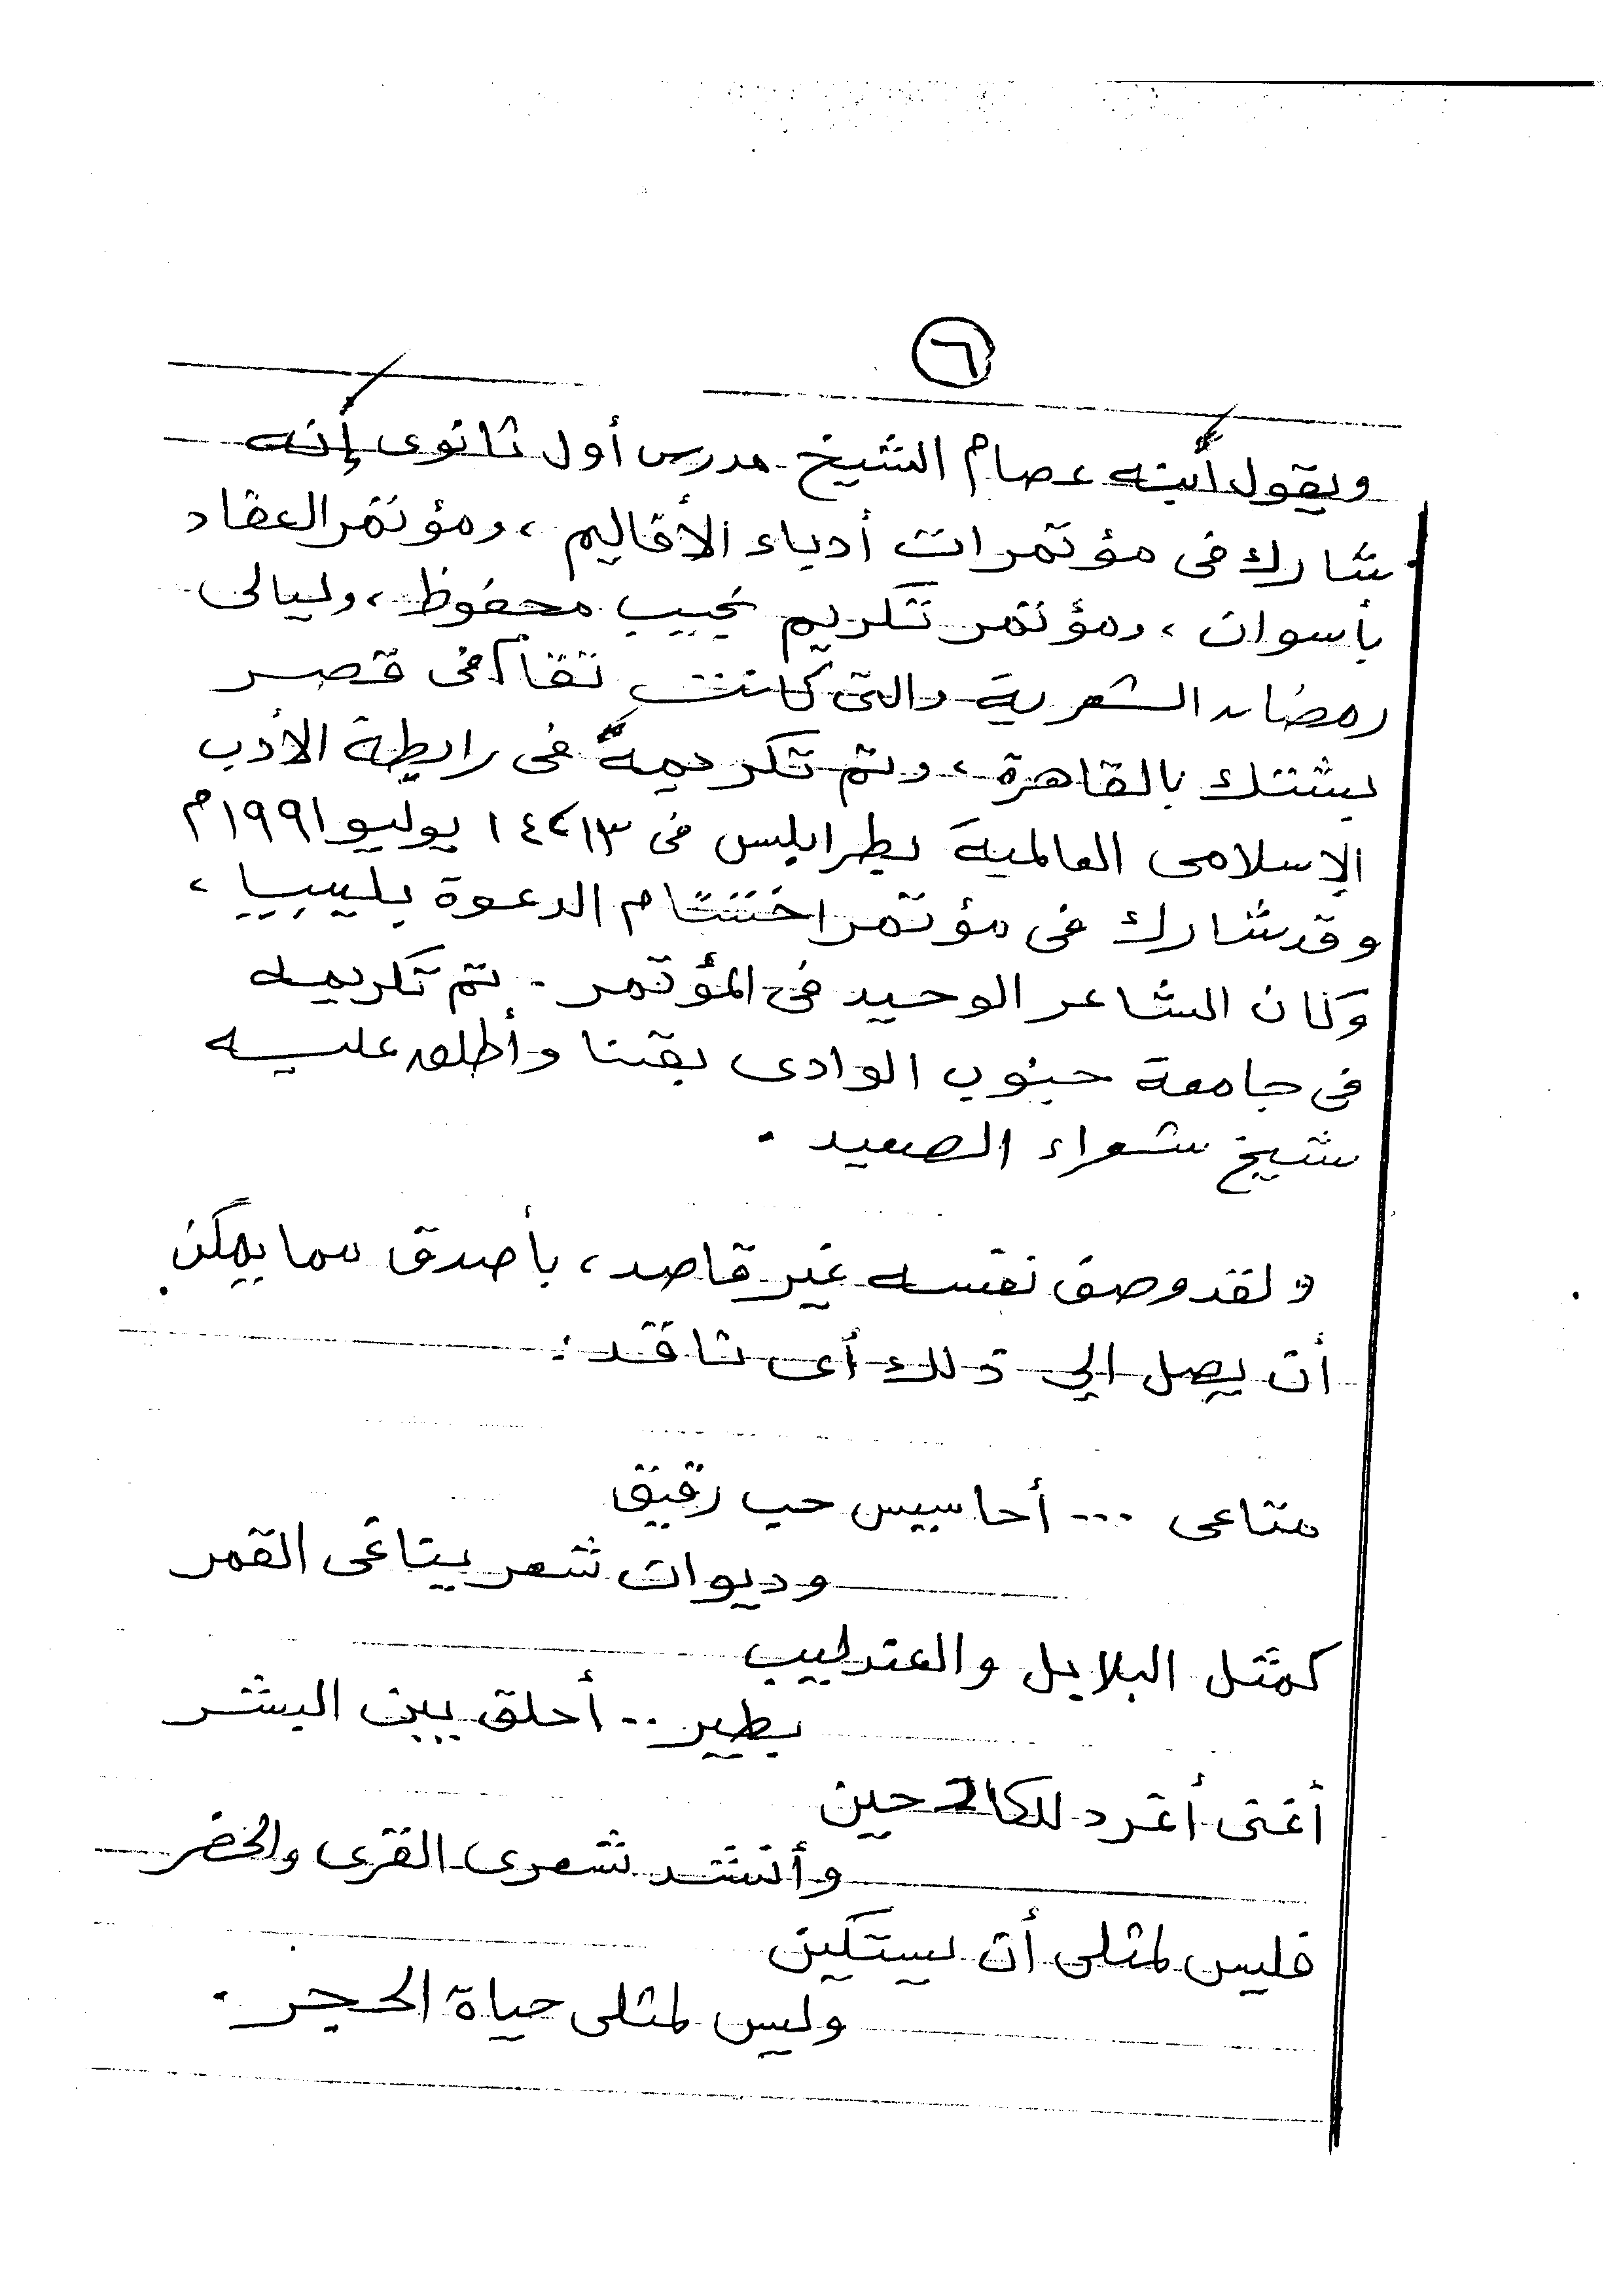 ٦
ويقول ابنه عصام الشيخ مدرس أول ثانوى إنه
شارك فى مؤتمرات أدباء الأقاليم ، ومؤتمر العقاد
بأسوان ، ومؤتمر تكريم نجيب محفوظ ، وليالى
رمضان الشعرية والتى كانت تقام فى قصر
بشتك بالقاهرة ، وتم تكريمه فى رابطة الأدب
الإسلامى العالمية بطرابلس فى ١٣ ، ١٤ يوليو ١٩٩١م
وقد شارك فى مؤتمر اختتام الدعوة بليبيا ،
وكان الشاعر الوحيد فى المؤتمر . تم تكريمه
فى جامعة جنوب الوادى بقنا وأطلق عليه
شيخ شعراء الصعيد .
ولقد وصف نفسه غير قاصد ، بأصدق مما يمكن
أن يصل إلي ذلك أى ناقد :
متاعى ... أحاسيس حب رقيق
وديوان شعر يناغى القمر
كمثل البلابل والعندليب
يطير .. أحلق بين البشر
أغنى أغرد للكادحين
وأنشد شعرى القرى والحضر
فليس لمثلى أن يستكين
وليس لمثلى حياة الحجر .